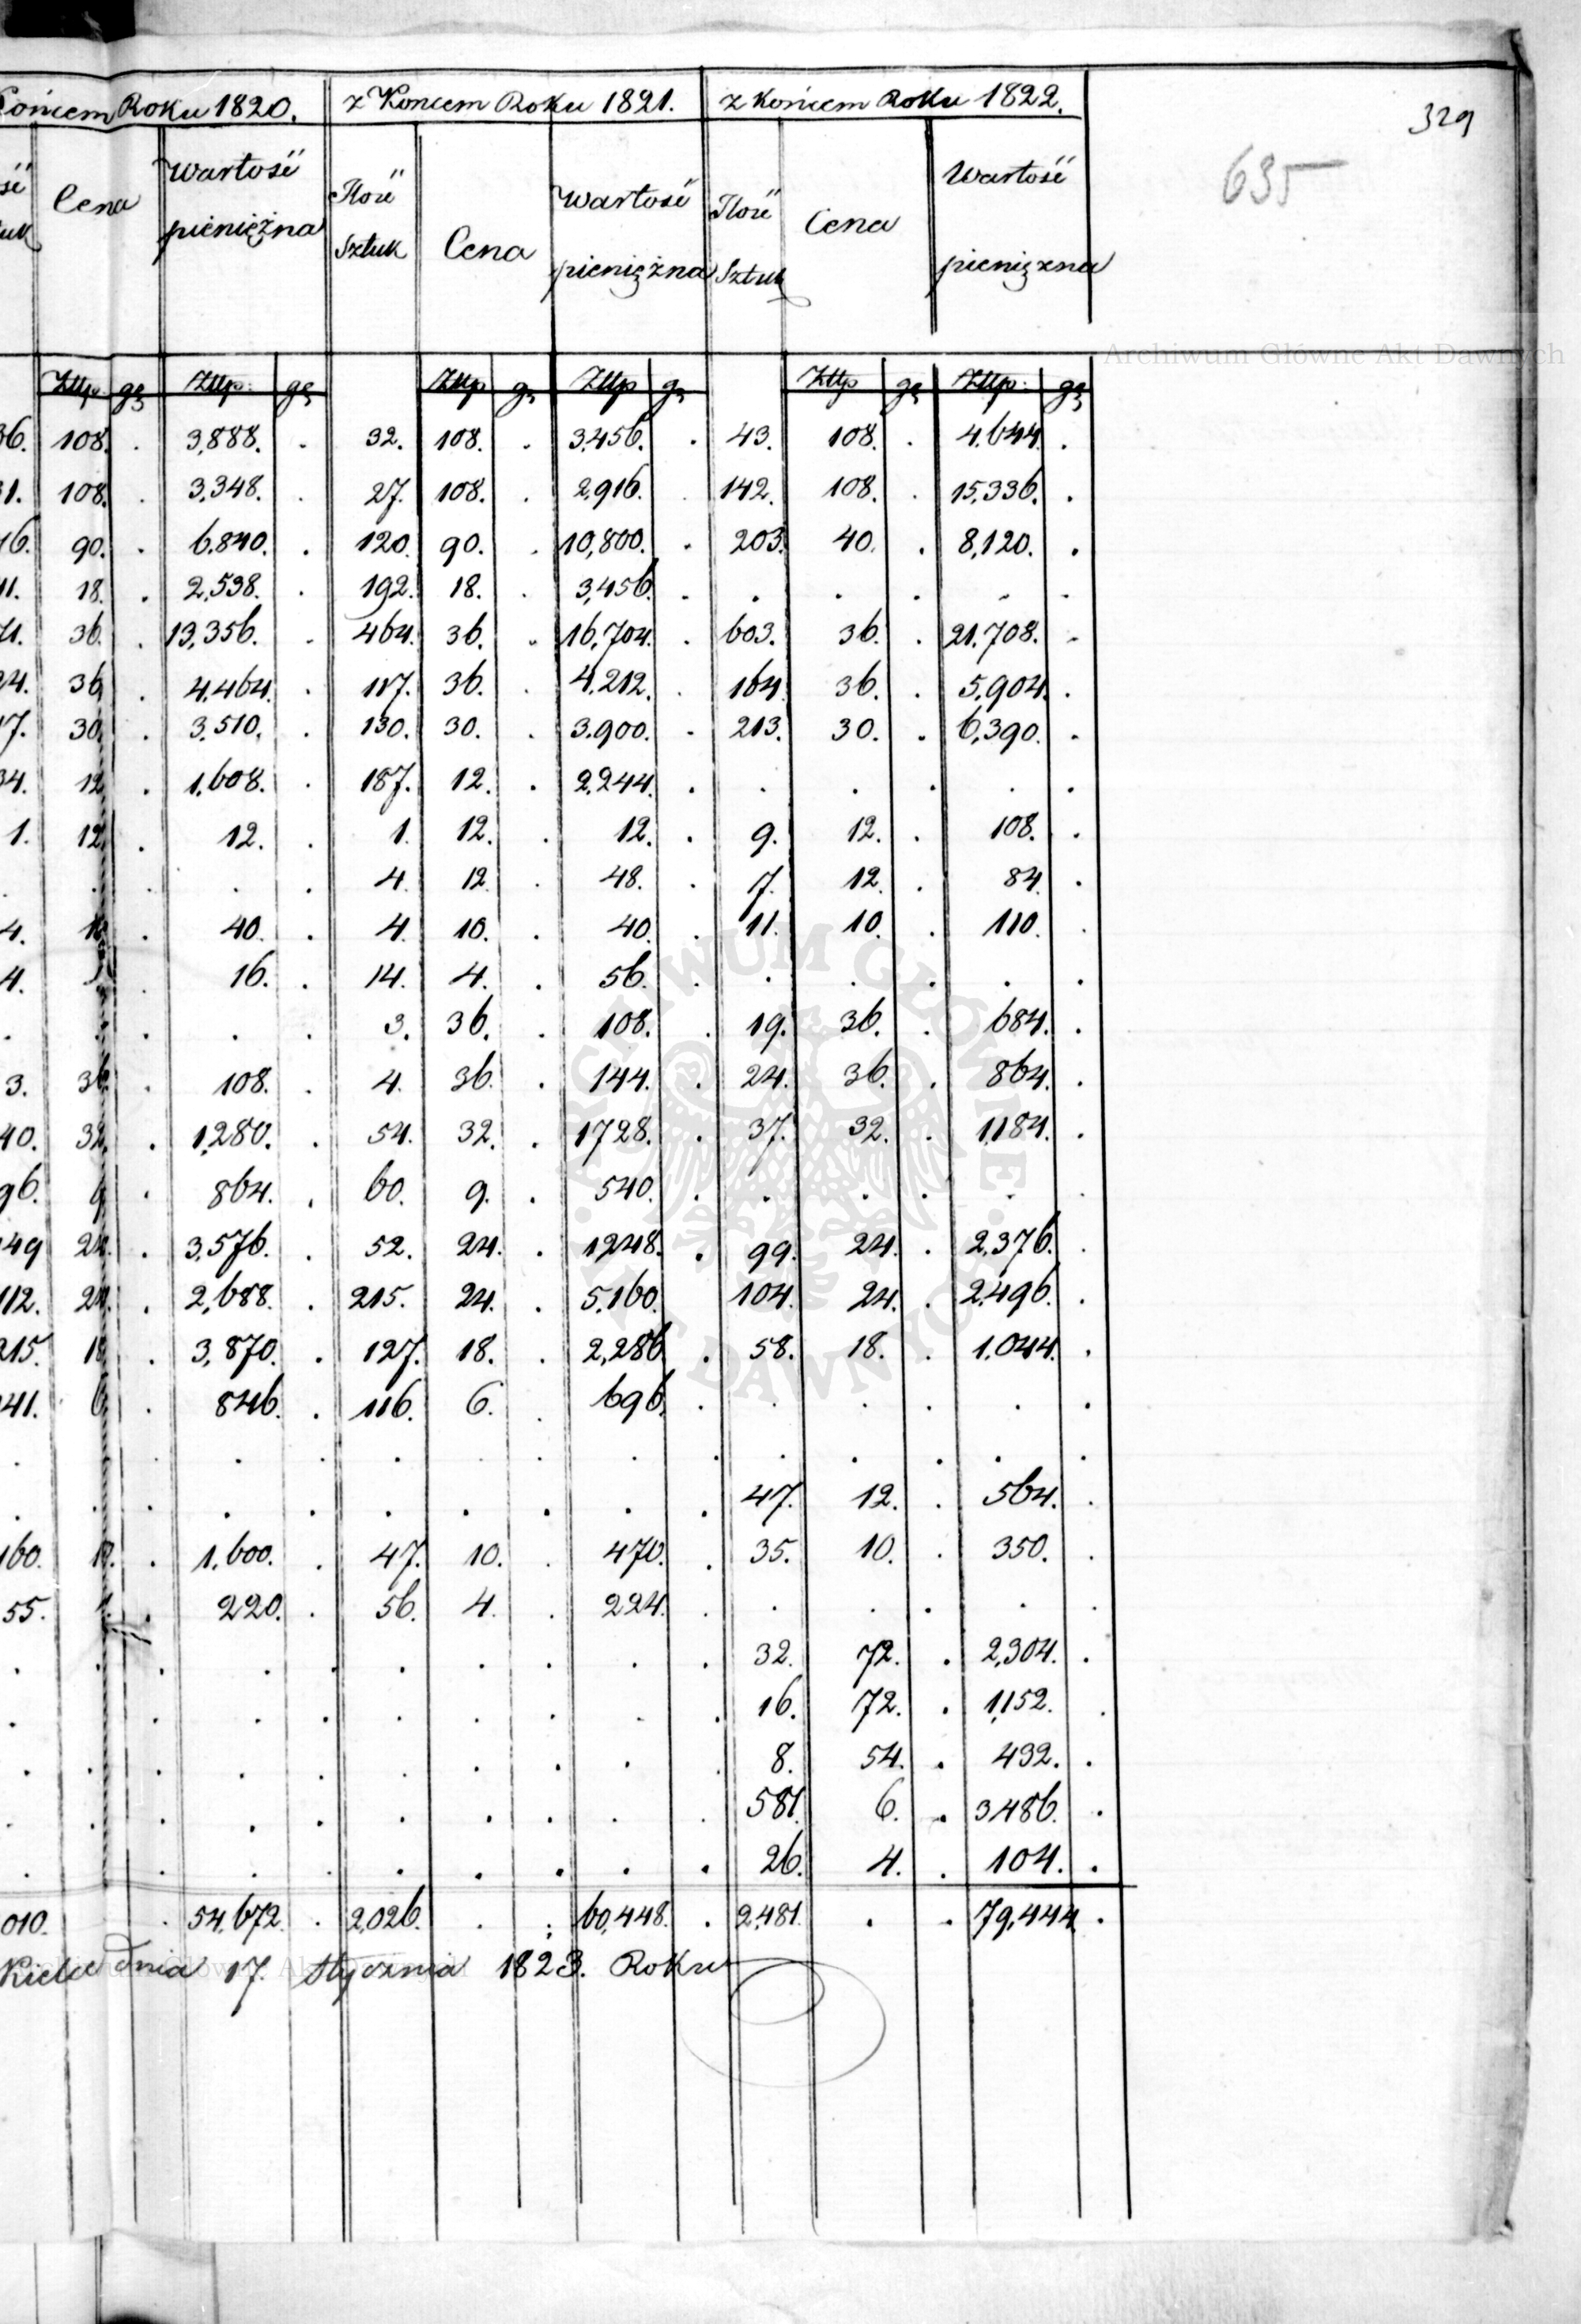 końcem Roku 1820. z Końcem Roku 1821. z końcem Roku 1822.
329
635
Cena Wartość pieniężna Ilość Sztuk Cena Wartość pieniężna Ilość Sztuk Cena Wartość pieniężna
Archiwum Główne Akt Dawnych
Złłp gr Złłp: gr Złłp gr Złłp gr Złłp gr Złłp: gr
36. 108. . 3,888. . 32. 108. . 3,456. . 43. 108. . 4,644. .
31. 108. . 3,348. . 27. 108. . 2,916. . 142. 108. . 15,336. .
76. 90. . 6,840. . 120. 90. . 10,800. . 203. 40. . 8,120. .
41. 18. . 2,538. . 192. 18. . 3,456. . . . . . .
71. 36. . 13,356. . 464. 36. . 16,704. . 603. 36. . 21,708. .
24. 36. . 4,464. . 117. 36. . 4,212. . 164. 36. . 5,904. .
17. 30. . 3,510. . 130. 30. . 3,900. . 213. 30. . 6,390. .
34. 12. . 1,608. . 187. 12. . 2,244. . . . . . .
1. 12. . 12. . 1. 12. . 12. . 9. 12. . 108. .
. . . . . 4. 12. . 48. . 7. 12. . 84. .
4. 10. . 40. . 4. 10. . 40. . 11. 10. . 110. .
4. . 16. . 14. 4. . 56. . . . . . .
. . . . . 3. 36. . 108. . 19. 36. . 684. .
3. 36. . 108. . 4. 36. . 144. . 24. 36. . 864. .
40. 32. . 1,280. . 54. 32. . 1728. . 37. 32. . 1,184. .
96. 9. . 864. . 60. 9. . 540. . . . . . .
149 24. . 3,576. . 52. 24. . 1248. . 99. 24. . 2,376. .
112. 24. . 2,688. . 215. 24. . 5,160. . 104. 24. . 2,496. .
215. 18. . 3,870. . 127. 18. . 2,286. . 58. 18. . 1,044. .
141. 6. . 846. . 116. 6. . 696. . . . . . .
. . . . . . . . . . . . .
. . . . . . . . . . 47. 12. . 564. .
160. 10. . 1,600. . 47. 10. . 470. . 35. 10. . 350. .
55. 4. . 220. . 56. 4. . 224. . . . . . .
. . . . . . . . . . 32. 72. . 2,304. .
. . . . . . . . . 16. 72. . 1,152. .
. . . . . . . . . . 8. 54. . 432. .
. . . . . . . . . . 581. 6. . 3486. .
. . . . . . . . . 26. 4. . 104. .
010. . 54,672. . 2,026. . . 60,448. . 2,481. . . 79,444. .
Kielce dnia 17. Stycznia 1823. Roku
ARCHIWUM GŁÓWNE AKT DAWNYCH